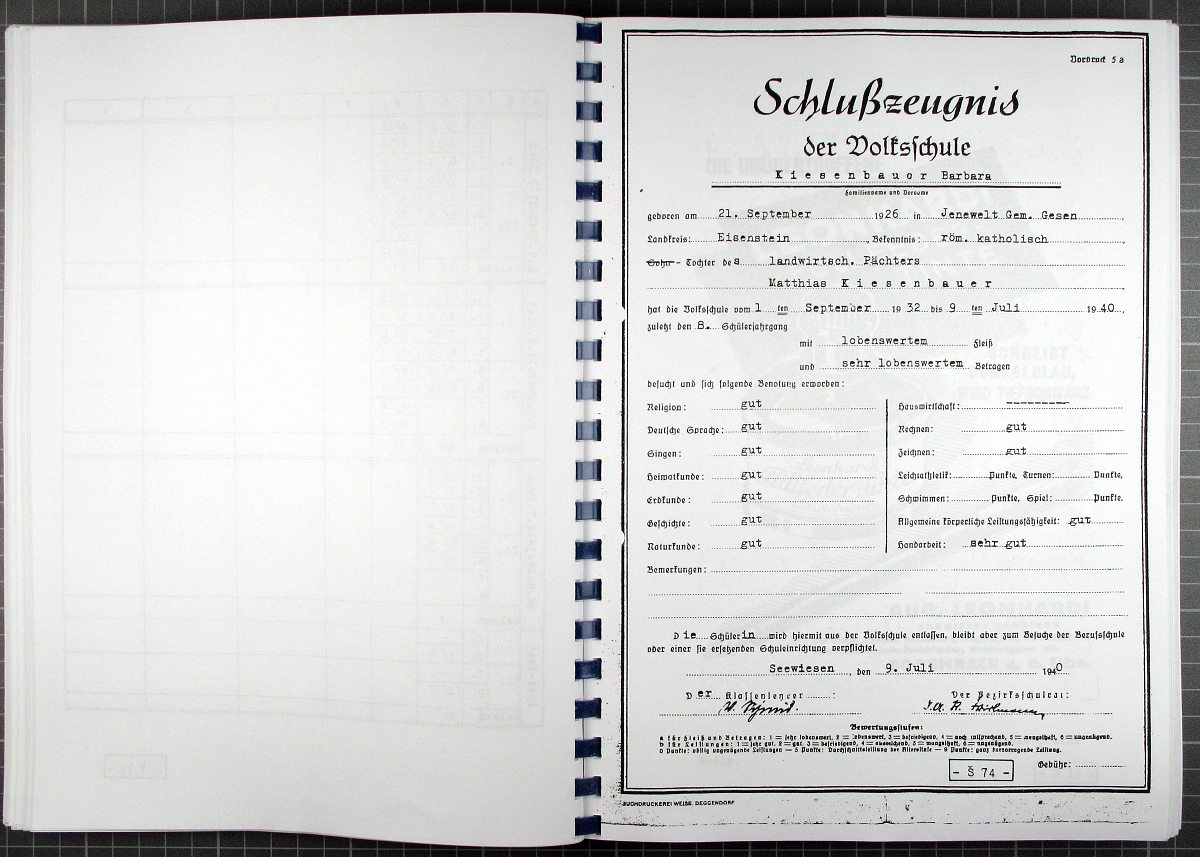 Vordruck 5 a
Schlußzeugnis
der Volksschule
Kiesenbauor Barbara
Familienname und Vorname
geboren am 21. September 1926 in Jenewelt Gem. Gesen,
Landkreis: Eisenstein, Bekenntnis: röm. katholisch,
Sohn - Tochter des landwirtsch. Pächters
Matthias Kiesenbauer,
hat die Volksschule vom 1 ten September 1932 bis 9 ten Juli 1940,
zuletzt den 8. Schülerjahrgang
mit lobenswertem Fleiß
und sehr lobenswertem Betragen
besucht und sich folgende Benotung erworben:
Religion: gut
Deutsche Sprache: gut
Singen: gut
Heimatkunde: gut
Erdkunde: gut
Geschichte: gut
Naturkunde: gut
Hauswirtschaft: ---------
Rechnen: gut
Zeichnen: gut
Leichtathletik: Punkte, Turnen: Punkte,
Schwimmen: Punkte, Spiel: Punkte.
Allgemeine körperliche Leistungsfähigkeit: gut
Handarbeit: sehr gut
Bemerkungen:
Die Schülerin wird hiermit aus der Volksschule entlassen, bleibt aber zum Besuche der Berufsschule
oder einer sie ersetzenden Schuleinrichtung verpflichtet.
Seewiesen, den 9. Juli 1940
Der Klassenlehrer: Der Bezirksschulrat:
Bewertungsstufen:
a für Fleiß und Betragen: 1 = sehr lobenswert, 2 = lobenswert, 3 = befriedigend, 4 = noch entsprechend, 5 = mangelhaft, 6 = ungenügend.
b für Leistungen: 1 = sehr gut, 2 = gut, 3 = befriedigend, 4 = ausreichend, 5 = mangelhaft, 6 = ungenügend.
0 Punkte: völlig ungenügende Leistungen — 5 Punkte: Durchschnittsleistung der Altersstufe — 9 Punkte: ganz hervorragende Leistung.
- Š 74 - Gebühr:
BUCHDRUCKEREI WEISS, DEGGENDORF